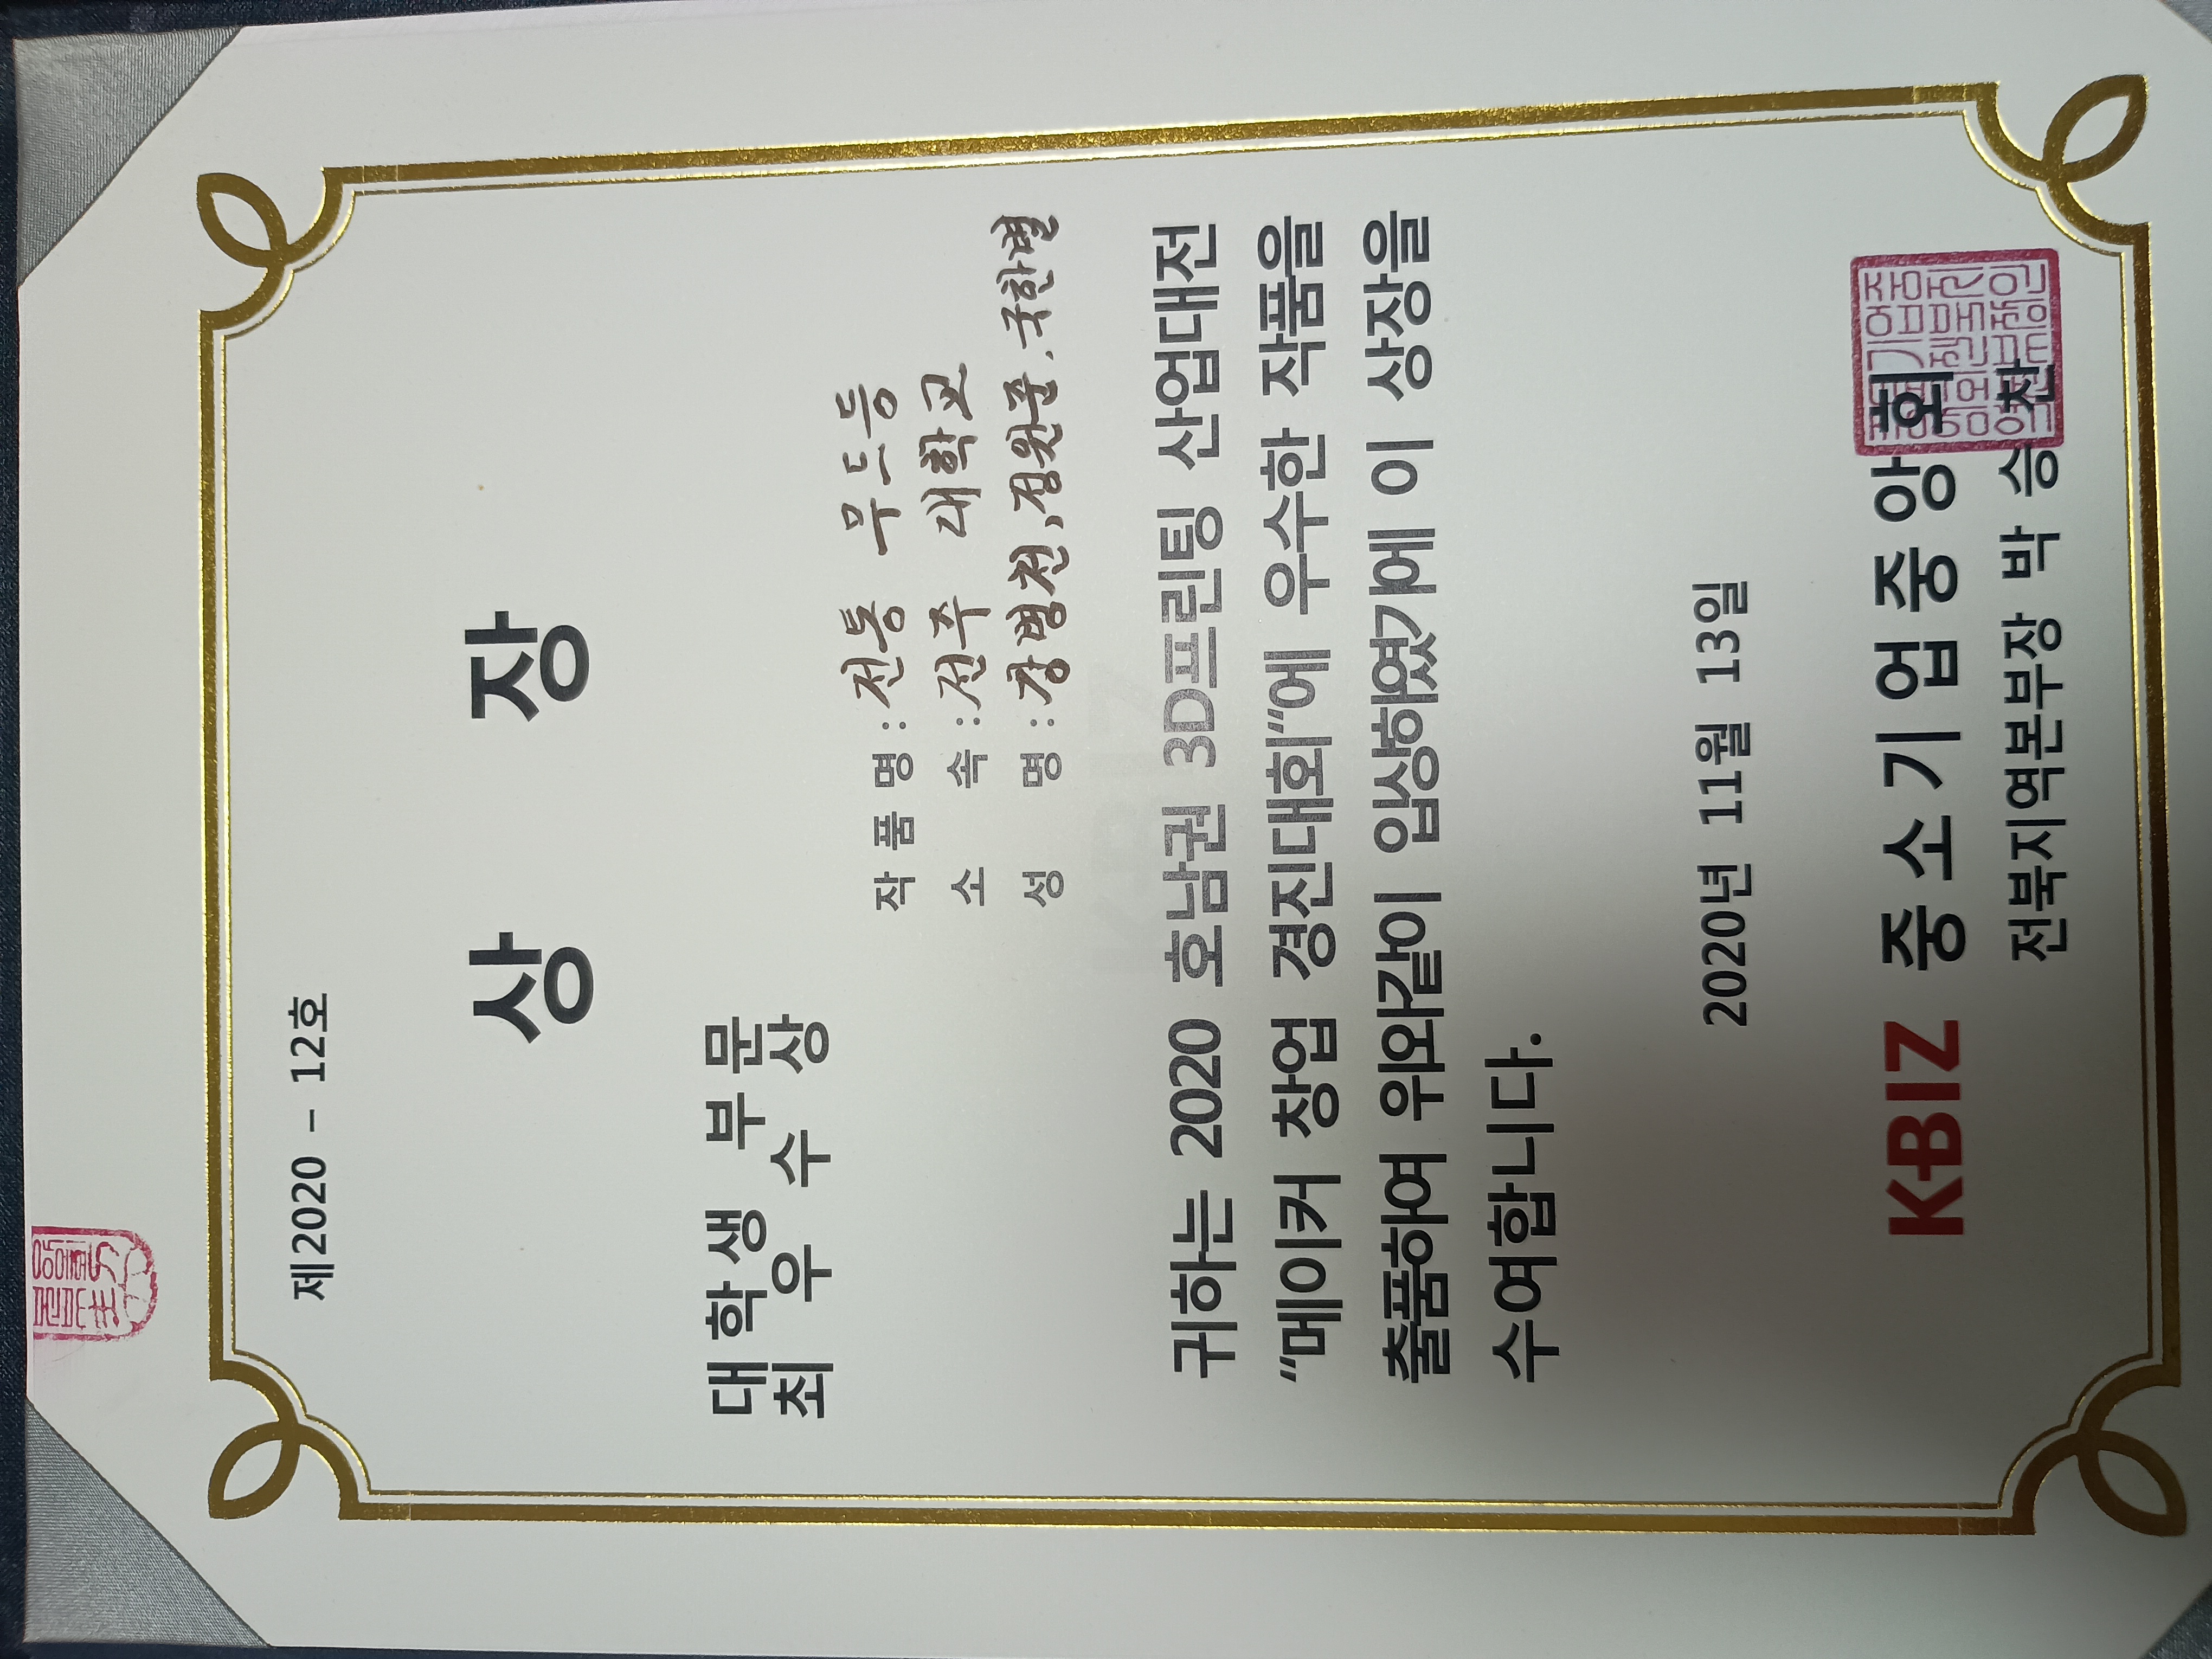 제2020 - 12호
상 장
대학생 부문
최 우 수 상
작 품 명 : 전통 무드등
소 속 : 전주 대학교
성 명 : 강병천, 정원준, 국한별
KBIZ
귀하는 2020 호남권 3D프린팅 산업대전
“메이커 창업 경진대회“에 우수한 작품을
출품하여 위와같이 입상하였기에 이 상장을
수여합니다.
2020년 11월 13일
KBIZ 중소기업중앙회
전북지역본부장 박 승 찬